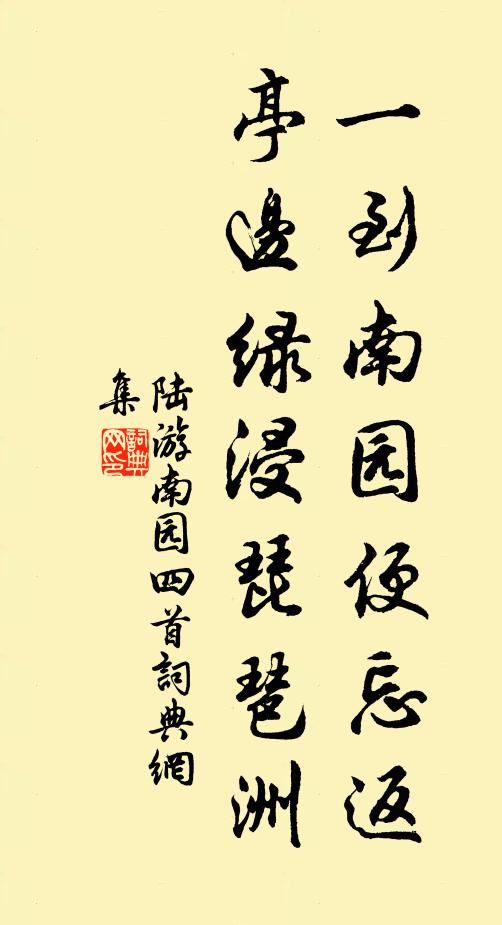 一到南园便忘返
亭邊绿浸琵琶洲
陆游南园四首詞典網
集
詞典网印